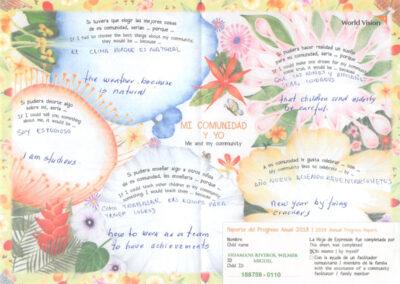 World Vision
Si tuviera que elegir las mejores cosas
de mi comunidad, serían ... porque ...
If I had to choose the best things about my community,
they would be ... because ...
EL CLIMA PORQUE ES NATURAL
the weather, because
is natural
Si pudiera hacer realidad un sueño
para mi comunidad, sería ... porque ...
If I could make one dream for my community
come true, it would be ... because ...
QUE LOS NIÑOS Y ANCIANOS
SEAN CUIDADOS
that children and elderly
be careful.
Si pudiera decirte algo
sobre mí, sería ...
If I could tell you something
about me, it would be ...
SOY ESTUDIOSO
I am studious
MI COMUNIDAD
Y YO
Me and my community
Si pudiera enseñar algo a otros niños
de mi comunidad, les enseñaría ... porque ...
If I could teach other children in my community
something, I would teach them ... because ...
COMO TRABAJAR EN EQUIPO PARA
TENER LOGROS
how to work as a team
to have achievements
A mi comunidad le gusta celebrar ... by ...
My community likes to celebrate ... by ...
AÑO NUEVO
new year by firing
crackers
Reporte del Progreso Anual 2018 | 2018 Annual Progress Report
Nombre
Child name
MIGUEL
ID
Child ID
188758 - 0110
La Hoja de Expresión fue completada por
This sheet was completed
Mi mismo | by myself
Con la ayuda de un facilitador
comunitario | miembro de la familia
with the assistance of a community
facilitator | family member